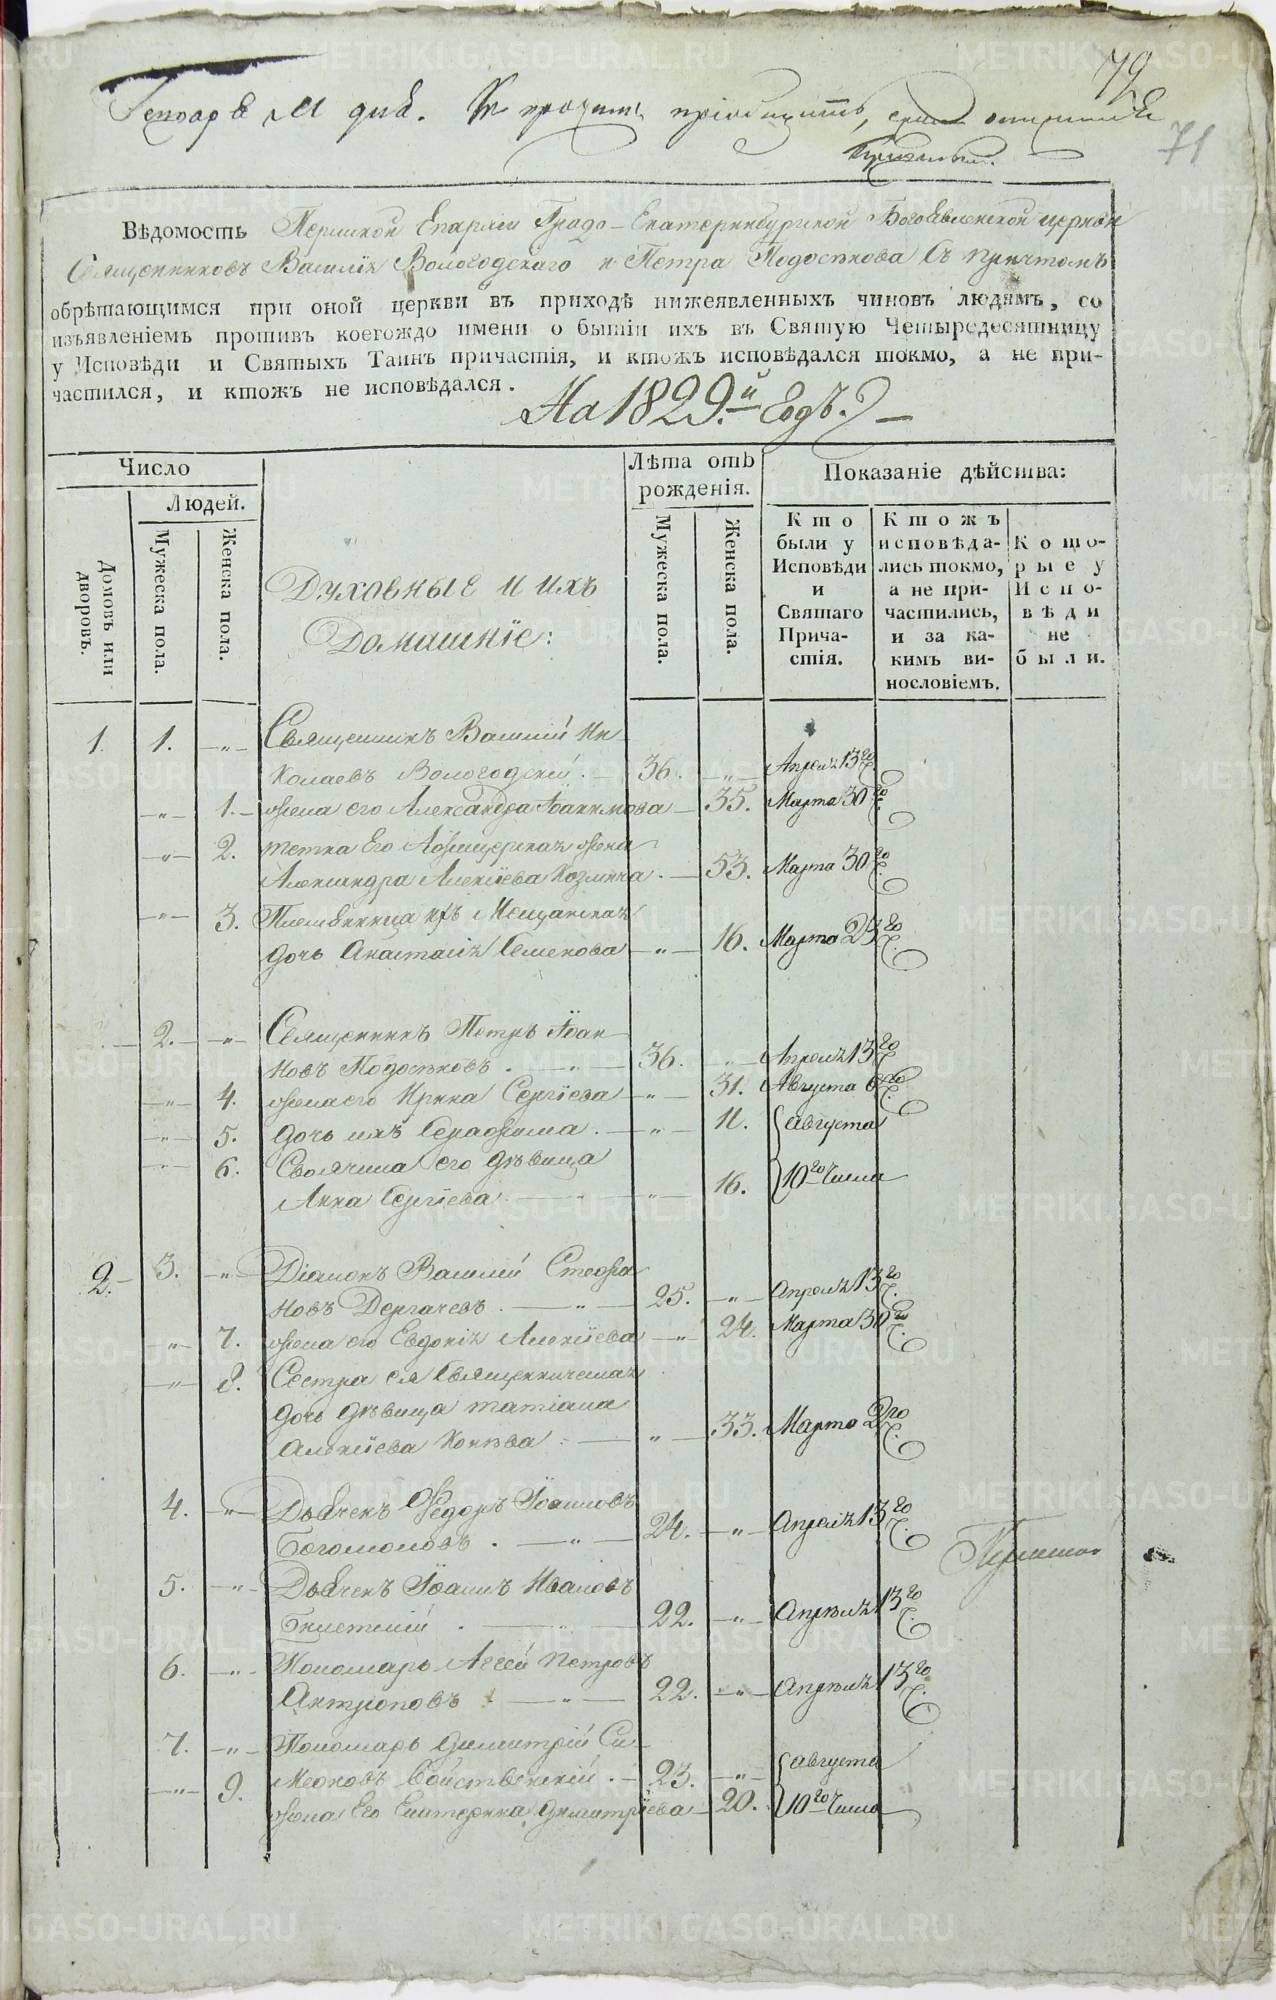 79
71
Вѣдомость Пермской Епархіи Градо-Екатеринбургской Богоявленской церкви
Священниковъ Василія Вологодскаго и Петра Подосѣнова съ причтомъ
обрѣтающимся при оной церкви въ приходѣ нижеявленныхъ чиновъ людямъ, со
изъявленіемъ противъ коегождо имени о бытіи ихъ въ Святую Четыредесятницу
у Исповѣди и Святыхъ Таинъ причастія, и ктожъ исповѣдался токмо, а не при-
частился, и ктожъ не исповѣдался.
На 1829.й Годъ.
Число
Людей.
Домовъ или дворовъ.
Мужеска пола.
Женска пола.
Духовные и ихъ
Домашніе:
Лѣта отъ
рожденія.
Мужеска пола.
Женска пола.
Показаніе дѣйства:
Кто
были у
Исповѣди
и
Святаго
Прича-
стія.
Ктожъ
исповѣда-
лись токмо,
а не при-
частились,
и за ка-
кимъ ви-
нословіемъ.
Кото-
рые у
Испо-
вѣди
не
были.
1. 1. —„— Священникъ Василій Ни-
колаевъ Вологодскій. — 36. —„— Апреля 13го ч.
—„— 1. — жена его Александра Іоакимова — 35. Марта 30го ч.
—„— 2. тетка Его жена
Александра Алексіева . — 53. Марта 30го ч.
—„— 3. Племянница ихъ Мещанская
дочь Анастасія Семенова —„— 16. Марта го ч.
2. —„— Священникъ Петръ Іоан-
новъ Подосѣновъ . —„— 36. —„— Апреля 13го ч.
—„— 4. жена его Ирина Сергіева —„— 31. Августа 6го ч.
—„— 5. дочь ихъ Серафима . —„— 11. Августа
—„— 6. Своячина его дѣвица
Анна Сергіева —„— 16. 10го числа
2. — 3. —„— Діаконъ Василій Стефа-
новъ Дергачевъ . —„— 25. —„— Апреля 13го ч.
—„— 7. жена его Евдокія Алексіева —„— 24. Марта 30го ч.
—„— 8. Сестра ея Священническая
дочь дѣвица Татіана
Алексіева Конева . —„— 33. Марта 2го ч.
4. —„— Дьячекъ Ѳедоръ Іоанновъ
Богомоловъ . —„— 24. —„— Апреля 13го ч.
5. —„— Дьячекъ Іоаннъ Ивановъ
. —„— 22. —„— Апрѣля 13го ч.
6. —„— Пономарь Аггей Петровъ
Антроповъ —„— 22. —„— Апрѣля 13го ч.
7. —„— Пономарь Димитрій Си-
меоновъ Свойственскій . — 23. —„— Августа
—„— 9. жена Его Екатерина Димитріева — 20. 10го числа
METRIKI.GASO-URAL.RU